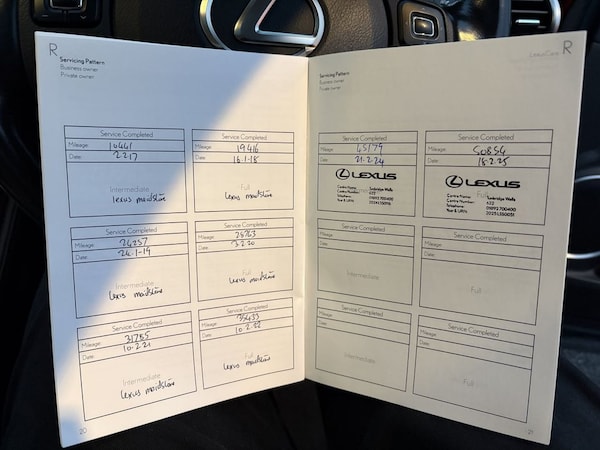 R
Servicing Pattern
Business owner
Private owner
Service Completed
Mileage: 10441
Date: 2.2.17
Intermediate
Lexus maidstone
Service Completed
Mileage: 19416
Date: 16.1.18
Full
Lexus maidstone
Service Completed
Mileage: 24257
Date: 24.1.19
Intermediate
Lexus maidstone
Service Completed
Mileage:
Date: 3.2.20
Full
Lexus maidstone
Service Completed
Mileage: 31755
Date: 10.2.21
Intermediate
Lexus maidstone
Service Completed
Mileage: 35433
Date: 10.2.22
Full
Lexus maidstone
20
LexusCare R
Servicing Pattern
Business owner
Private owner
Service Completed
Mileage: 45179
Date: 21.2.24
LEXUS
Centre Name: Tunbridge Wells
Centre Number: 622
Telephone: 01892 700400
Year & URN:
Service Completed
Mileage: 50854
Date: 18.2.25
Full
LEXUS
Centre Name: Tunbridge Wells
Centre Number: 622
Telephone: 01892 700400
Year & URN:
Service Completed
Mileage:
Date:
Intermediate
Service Completed
Mileage:
Date:
Full
Service Completed
Mileage:
Date:
Intermediate
Service Completed
Mileage:
Date:
Full
21